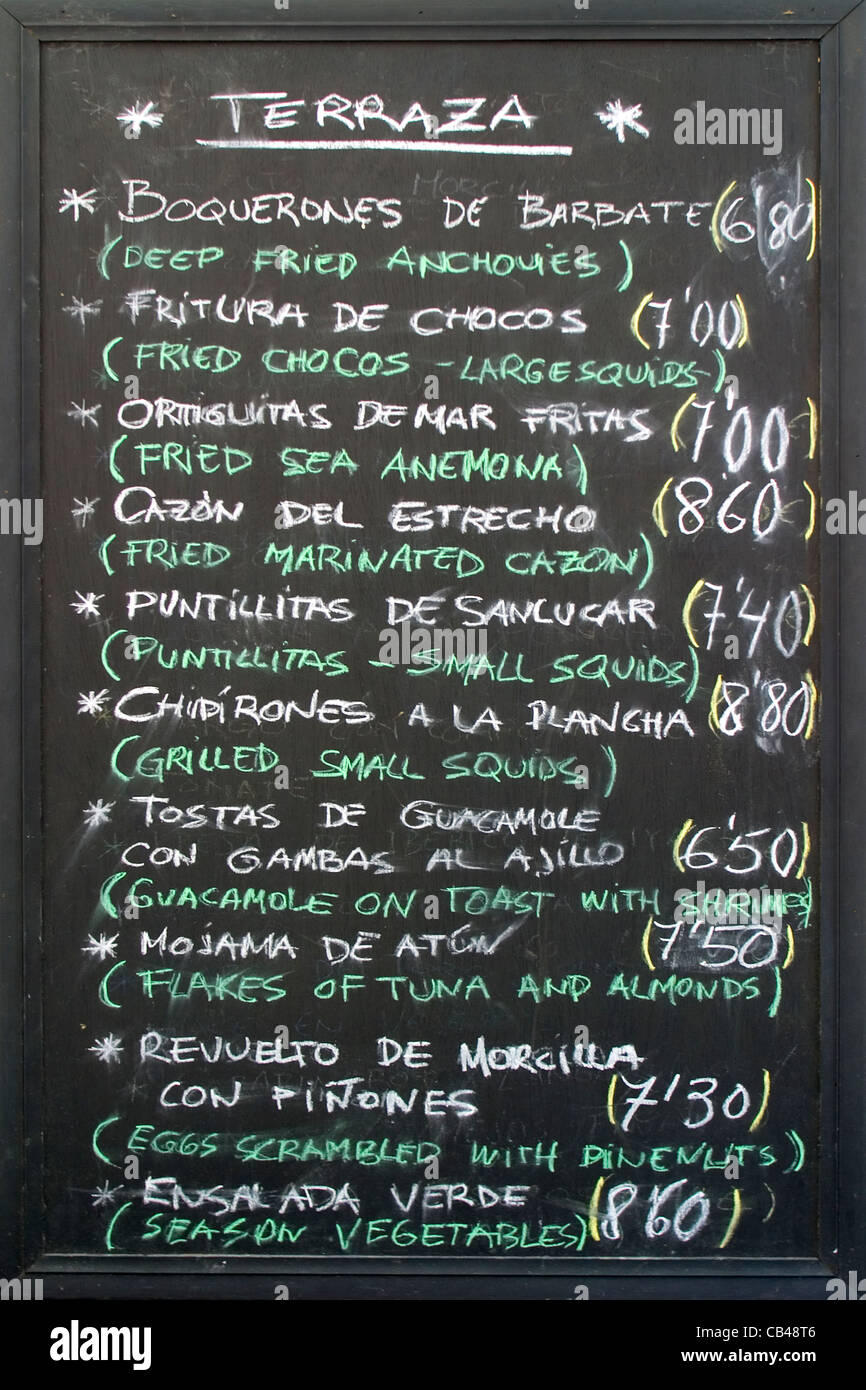 * TERRAZA *
* BOQUERONES DE BARBATE (6'80)
(DEEP FRIED ANCHOVIES)
* FRITURA DE CHOCOS (7'00)
(FRIED CHOCOS - LARGE SQUIDS)
* ORTIGUITAS DE MAR FRITAS (7'00)
(FRIED SEA ANEMONA)
* CAZÓN DEL ESTRECHO (8'60)
(FRIED MARINATED CAZON)
* PUNTILLITAS DE SANLUCAR (7'40)
(PUNTILLITAS - SMALL SQUIDS)
* CHIPIRONES A LA PLANCHA (8'80)
(GRILLED SMALL SQUIDS)
* TOSTAS DE GUACAMOLE
CON GAMBAS AL AJILLO (6'50)
(GUACAMOLE ON TOAST WITH SHRIMPS)
* MOJAMA DE ATÚN (7'50)
(FLAKES OF TUNA AND ALMONDS)
* REVUELTO DE MORCILLA
CON PIÑONES (7'30)
(EGGS SCRAMBLED WITH PINENUTS)
* ENSALADA VERDE (8'60)
(SEASON VEGETABLES)
alamy
Image ID: CB48T6
www.alamy.com